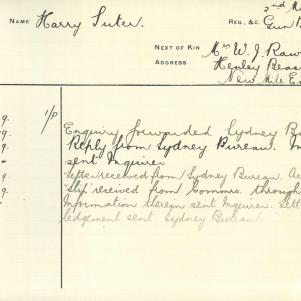 NAME Harry Suter. REG., &C. 2nd M
Gun B
NEXT OF KIN Mrs W. J. Raw
ADDRESS Henley Beac
New Mile E
g. 1/P Enquiry forwarded Sydney B
g. Reply from Sydney Bureau. In
" sent Inquirer
g. Letter received from Sydney Bureau. Ac
g. "slip" received from Commrs. through
" Information therein sent Inquirer. Lett
g. ledgement sent Sydney Bureau